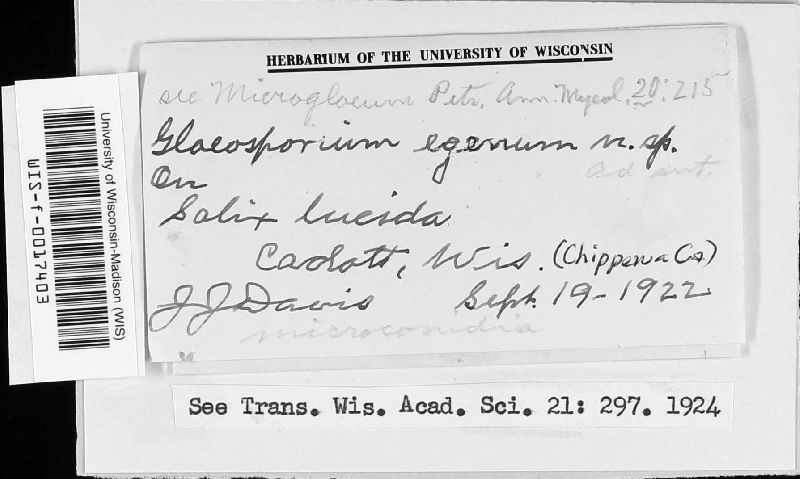 HERBARIUM OF THE UNIVERSITY OF WISCONSIN
see Microgloeum Petr. Ann. Mycol. 20:215
Gloeosporium egenum n. sp.
ad int.
On
Salix lucida
Cadott, Wis. (Chippewa Co)
J J Davis Sept. 19-1922
microconidia
University of Wisconsin-Madison (WIS)
WIS-f-0017403
See Trans. Wis. Acad. Sci. 21: 297. 1924